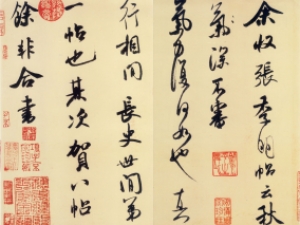 余収張季明帖云秋
氣深不審
氣力復何如也真
行相間長史世間第
一帖也其次賀八帖
餘非合書